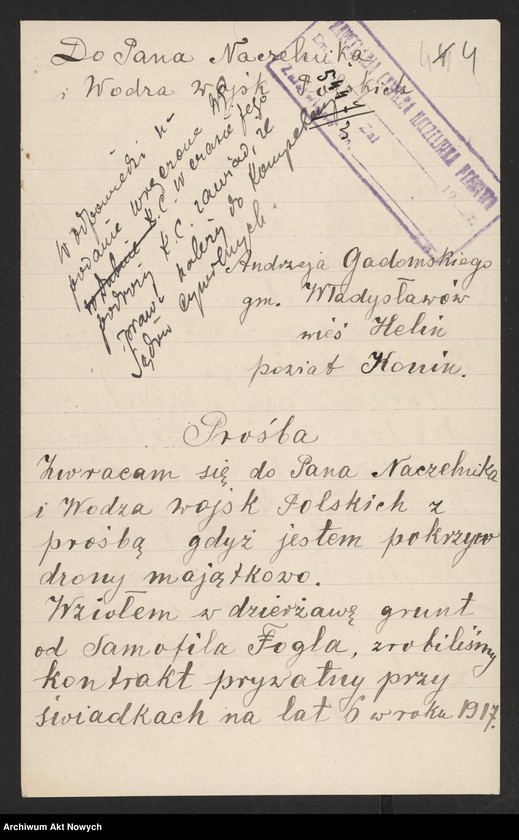 Do Pana Naczelnika
i Wodza wojsk Polskich
44
KANCELARJA CYWILNA NACZELNIKA PAŃSTWA
5441/3
Zał.
W odpowiedzi n-
podanie wręczone
w czasie jego
podróży K.C. zawiad, że
sprawa należy do Kompetencji
Sądów cywilnych.
Andrzeja Gadomskiego
gm. Władysławów
wieś Helin
powiat Konin.
Prośba
Zwracam się do Pana Naczelnika
i Wodza wojsk Polskich z
prośbą gdyż jestem pokrzyw
drony majątkowo.
Wziołem w dzierżawę grunt
od Samofila Fogla, zrobiliśmy
kontrakt prywatny przy
świadkach na lat 6 w roku 1917.
Archiwum Akt Nowych